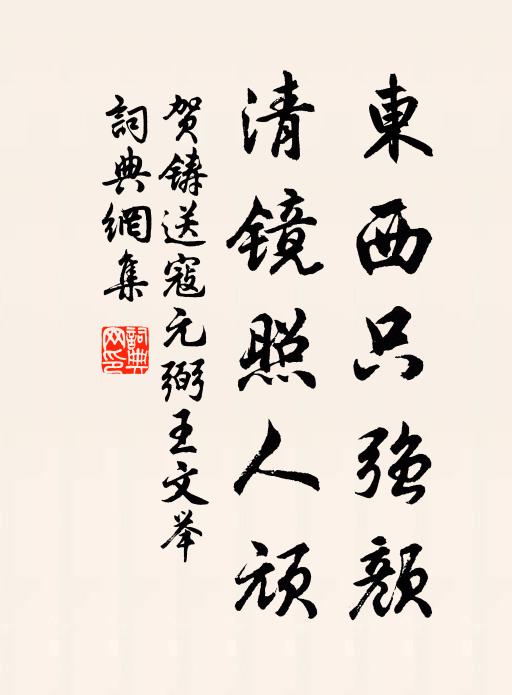 東西只強顏
清鏡照人頑
賀鑄送寇元弼王文举
詞典網集
詞典網印